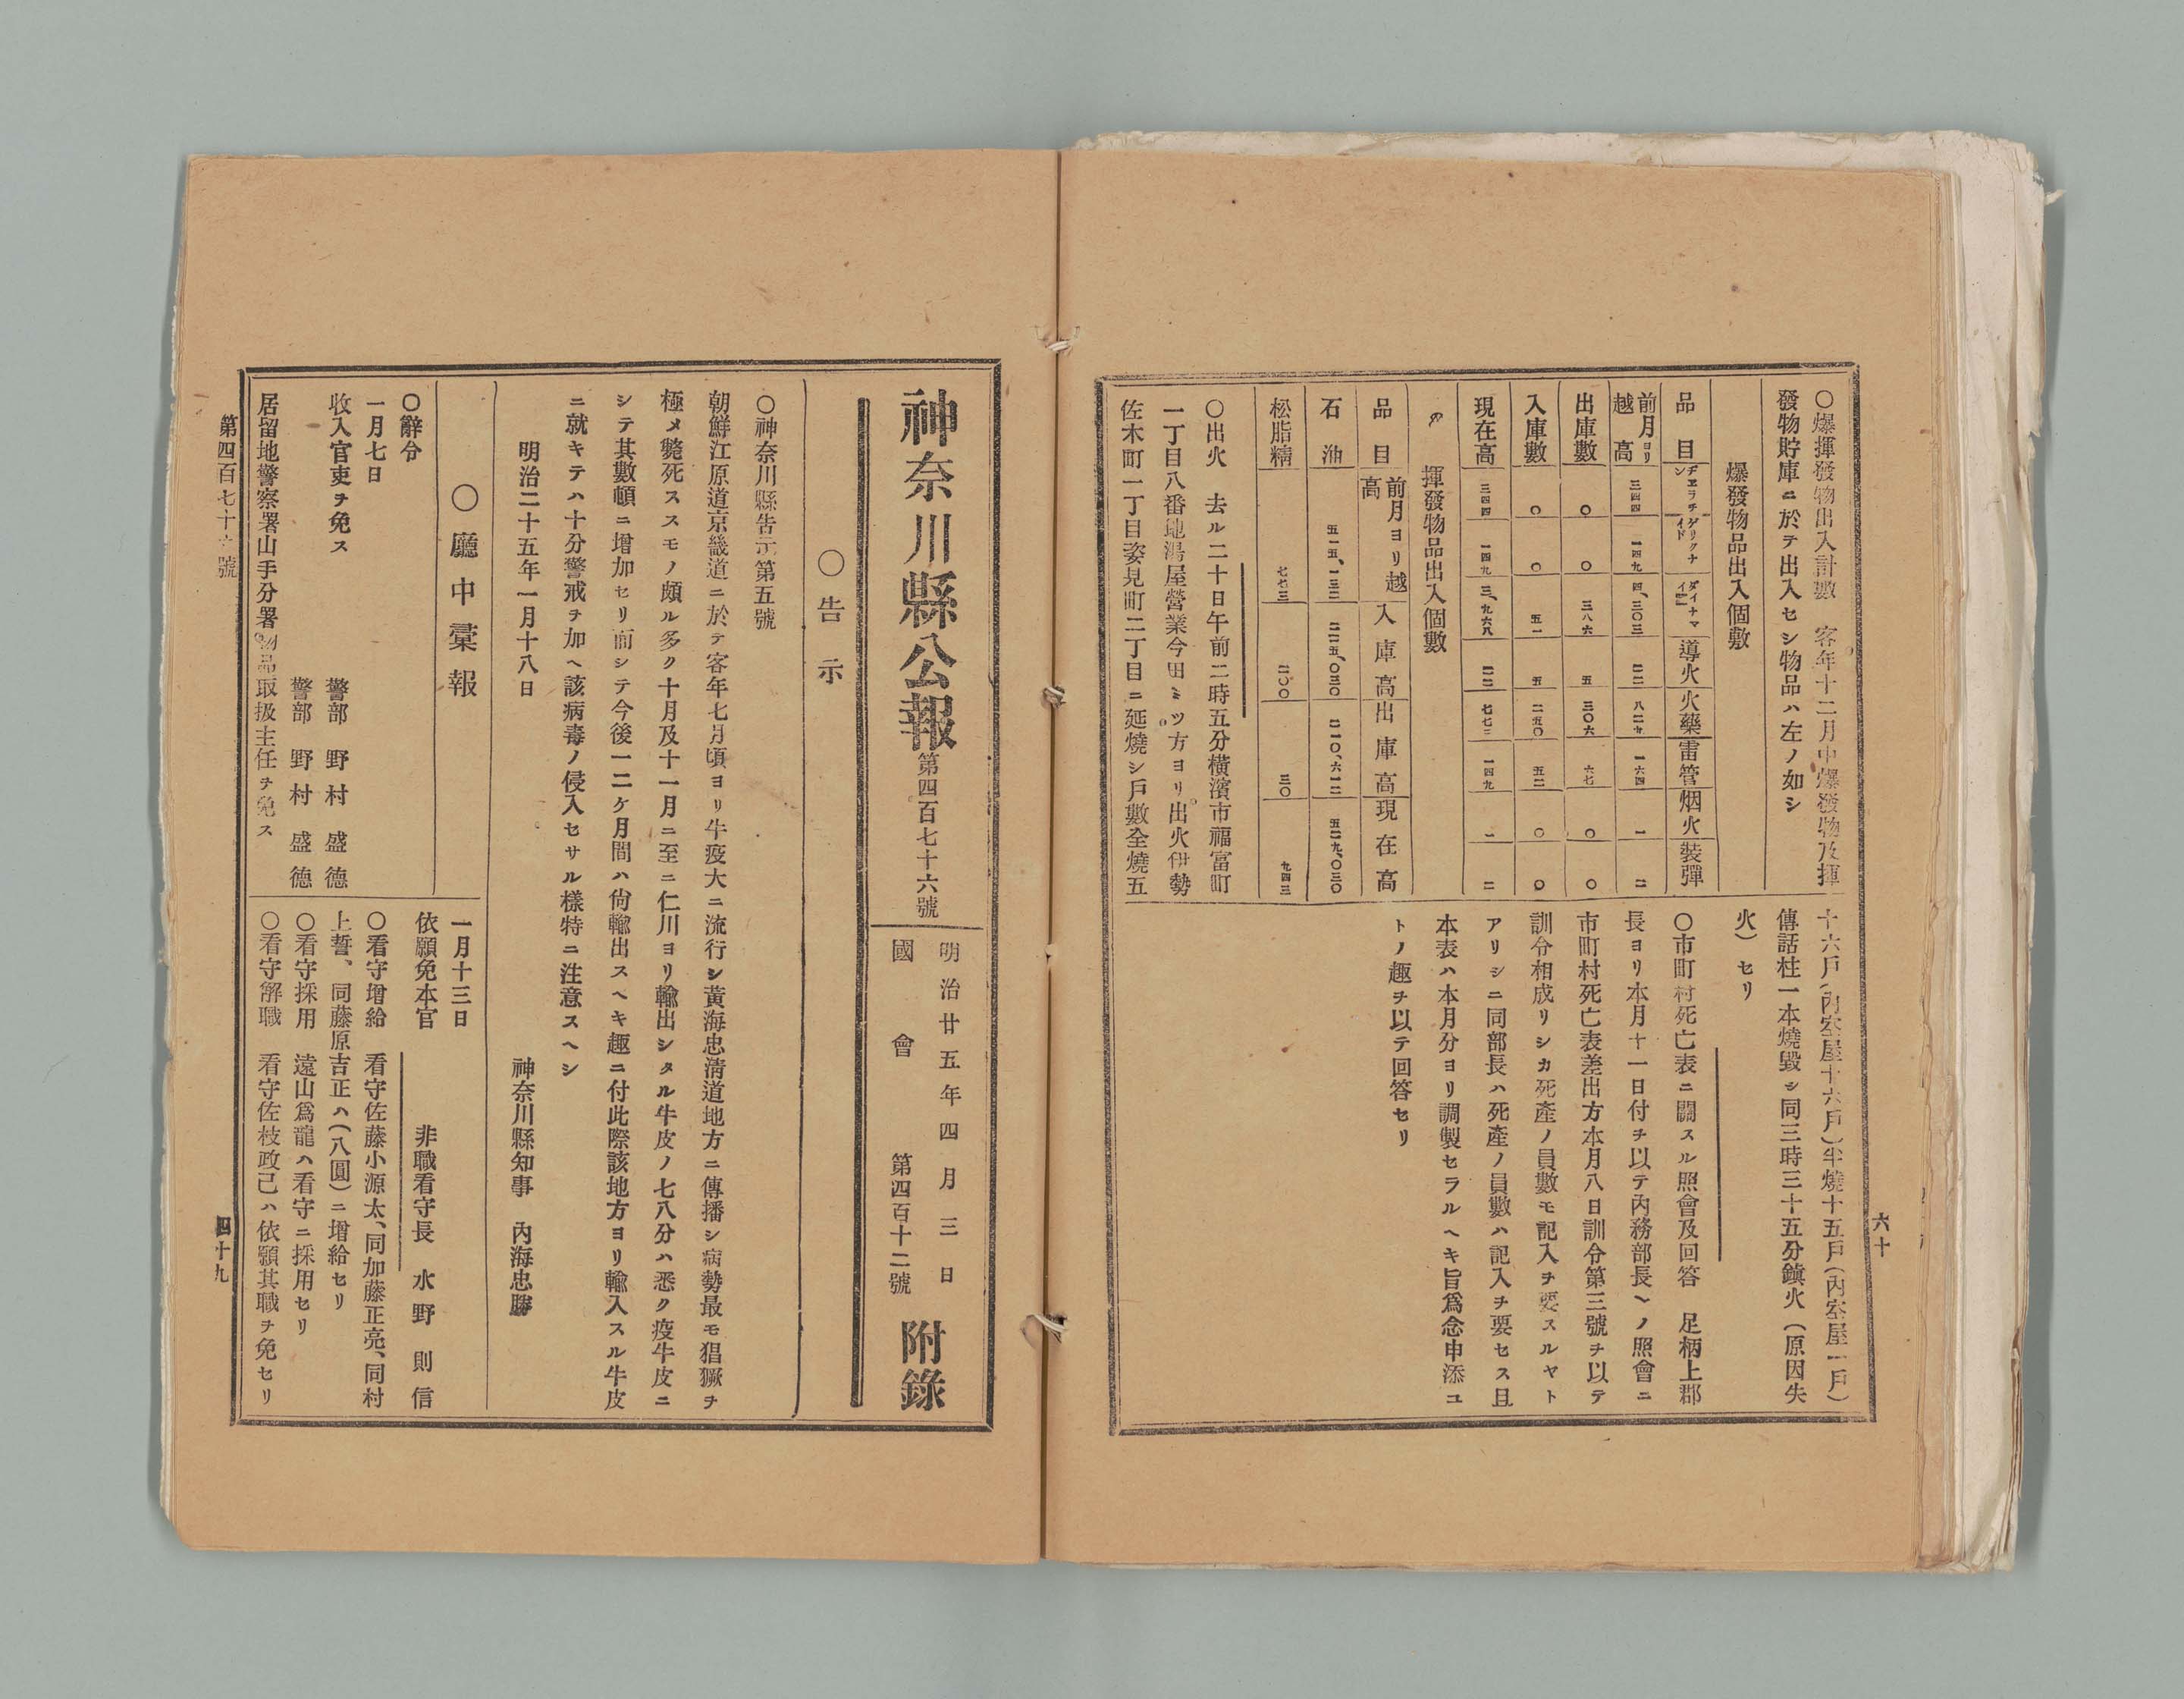 六十
○爆揮發物出入計數　客年十二月中爆發物及揮
發物貯庫ニ於テ出入セシ物品ハ左ノ如シ
爆發物品出入個數
品目　ダイナマイト　導火　火藥　雷管　烟火　裝彈
前月ヨリ越高　三四四　一四九　四、三〇三　二二　八二九　一六四　一　二
出庫數　〇　〇　三八六　五　三〇六　六七　〇　〇
入庫數　〇　〇　五一　五　二五〇　五二　〇　〇
現在高　三四四　一四九　三、九六八　二二　七七三　一四九　一　二
揮發物品出入個數
品目　前月ヨリ越高　入庫高　出庫高　現在高
石油　五一五、一三二　二二五、〇三〇　二一〇、六一二　五二九、〇三〇
松脂精　七七三　二〇〇　三〇　九四三
○出火　去ル二十日午前二時五分橫濱市福富町
一丁目八番地湯屋營業今田ミツ方ヨリ出火伊勢
佐木町一丁目姿見町二丁目ニ延燒シ戸數全燒五
十六戸(內空屋十六戸)半燒十五戸(內空屋一戸)
傳話柱一本燒毀シ同三時三十五分鎭火(原因失
火)セリ
○市町村死亡表ニ關スル照會及回答　足柄上郡
長ヨリ本月十一日付チ以テ內務部長ヘノ照會ニ
市町村死亡表差出方本月八日訓令第三號チ以テ
訓令相成リシカ死產ノ員數モ記入チ要スルヤト
アリシニ同部長ハ死產ノ員數ハ記入チ要セス且
本表ハ本月分ヨリ調製セラルヘキ旨爲念申添ユ
トノ趣チ以テ回答セリ
神奈川縣公報　第四百七十六號
明治廿五年四月三日
國會　第四百十二號　附錄
○告示
○神奈川縣告示第五號
朝鮮江原道京畿道ニ於テ客年七月頃ヨリ牛疫大ニ流行シ黃海忠淸道地方ニ傳播シ病勢最モ猖獗チ
極メ斃死ススモノ頗ル多ク十月及十一月ニ至ニ仁川ヨリ輸出シタル牛皮ノ七八分ハ悉ク疫牛皮ニ
シテ其數頓ニ增加セリ而シテ今後一二ケ月間ハ尙輸出スヘキ趣ニ付此際該地方ヨリ輸入スル牛皮
ニ就キテハ十分警戒チ加ヘ該病毒ノ侵入セサル樣特ニ注意スヘシ
明治二十五年一月十八日
神奈川縣知事　內海忠勝
○廳中彙報
○辭令
一月七日
收入官吏チ免ス
警部　野村盛德
警部　野村盛德
居留地警察署山手分署物品取扱主任チ免ス
一月十三日
依願免本官
非職看守長　水野則信
○看守增給　看守佐藤小源太、同加藤正亮、同村
上誓、同藤原吉正ハ(八圓)ニ增給セリ
○看守採用　遠山爲龍ハ看守ニ採用セリ
○看守解職　看守佐枝政己ハ依願其職チ免セリ
第四百七十六號
四十九